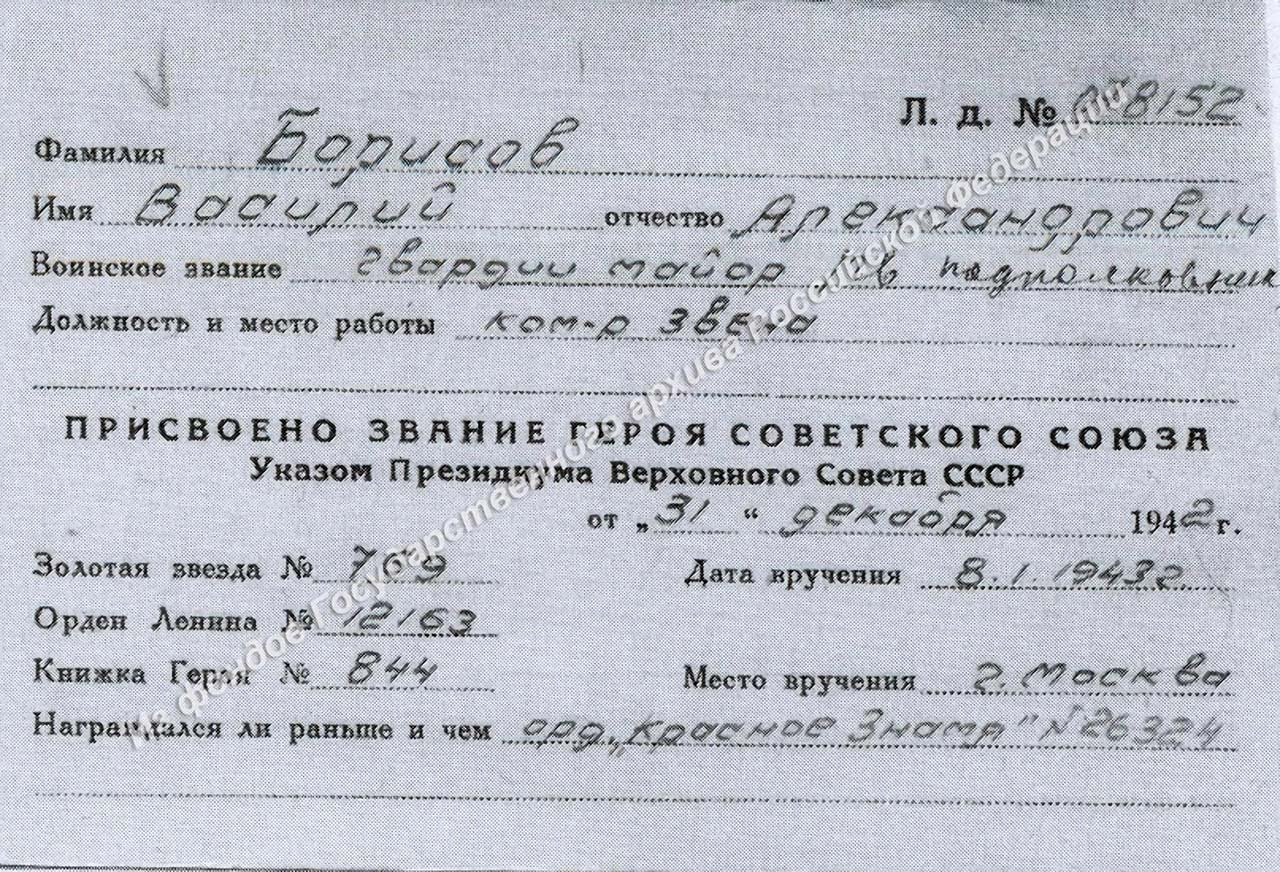 Л. д. № 8152
Фамилия Борисов
Имя Василий отчество Александрович
Воинское звание гвардии майор, подполковник
Должность и место работы ком-р звена
ПРИСВОЕНО ЗВАНИЕ ГЕРОЯ СОВЕТСКОГО СОЮЗА
Указом Президиума Верховного Совета СССР
от „31“ декабря 1942 г.
Золотая звезда № 769
Дата вручения 8.1.1943г.
Орден Ленина № 12163
Книжка Героя № 844
Место вручения г. Москва
Награждался ли раньше и чем орд. „Красное Знамя" №26324
Из фондов Государственного архива Российской Федерации